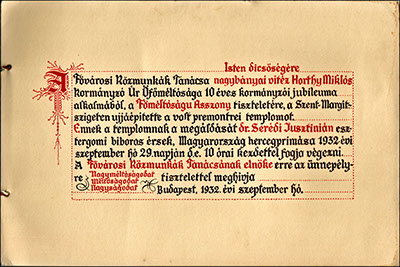 Isten dicsőségére
A Fővárosi Közmunkák Tanácsa nagybányai vitéz Horthy Miklós
Kormányzó Úr Őfőméltósága 10 éves kormányzói jubileuma
alkalmából, a Főméltóságu Asszony tiszteletére, a Szent-Margit-
szigeten ujjáépítette a volt premontrei templomot.
Ennek a templomnak a megáldását dr. Serédi Jusztinián esz-
tergomi biboros érsek, Magyarország hercegprimása 1932. évi
szeptember hó 29. napján d.e. 10 órai kezdettel fogja végezni.
A Fővárosi Közmunkák Tanácsának elnöke erre az ünnepély-
re Nagyméltóságodat
Méltóságodat tisztelettel meghivja
Nagyságodat
Budapest, 1932. évi szeptember hó.